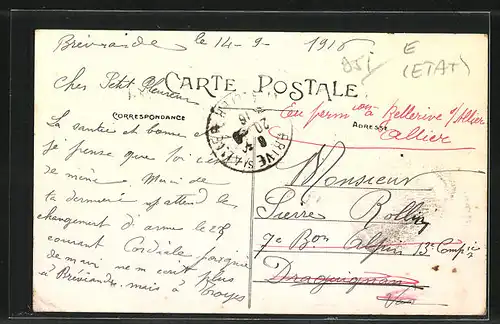 Bréviande le 14-9 1916
E
(ETAT)
Cher Petit
CARTE POSTALE
CORRESPONDANCE
ADRESSE
En perm on à Bellerive s/ Allier
Allier
La santé est bonne et
je pense que toi c'est
de même Merci de
ta dernière attend les
changement d'arme le 28
courant Cordiale
de main ne m'écrit plus
à Bréviande mais à Troyes
Monsieur
Pierre Rollin
7e Bon Alpin 13e Compie
Draguignan
Var